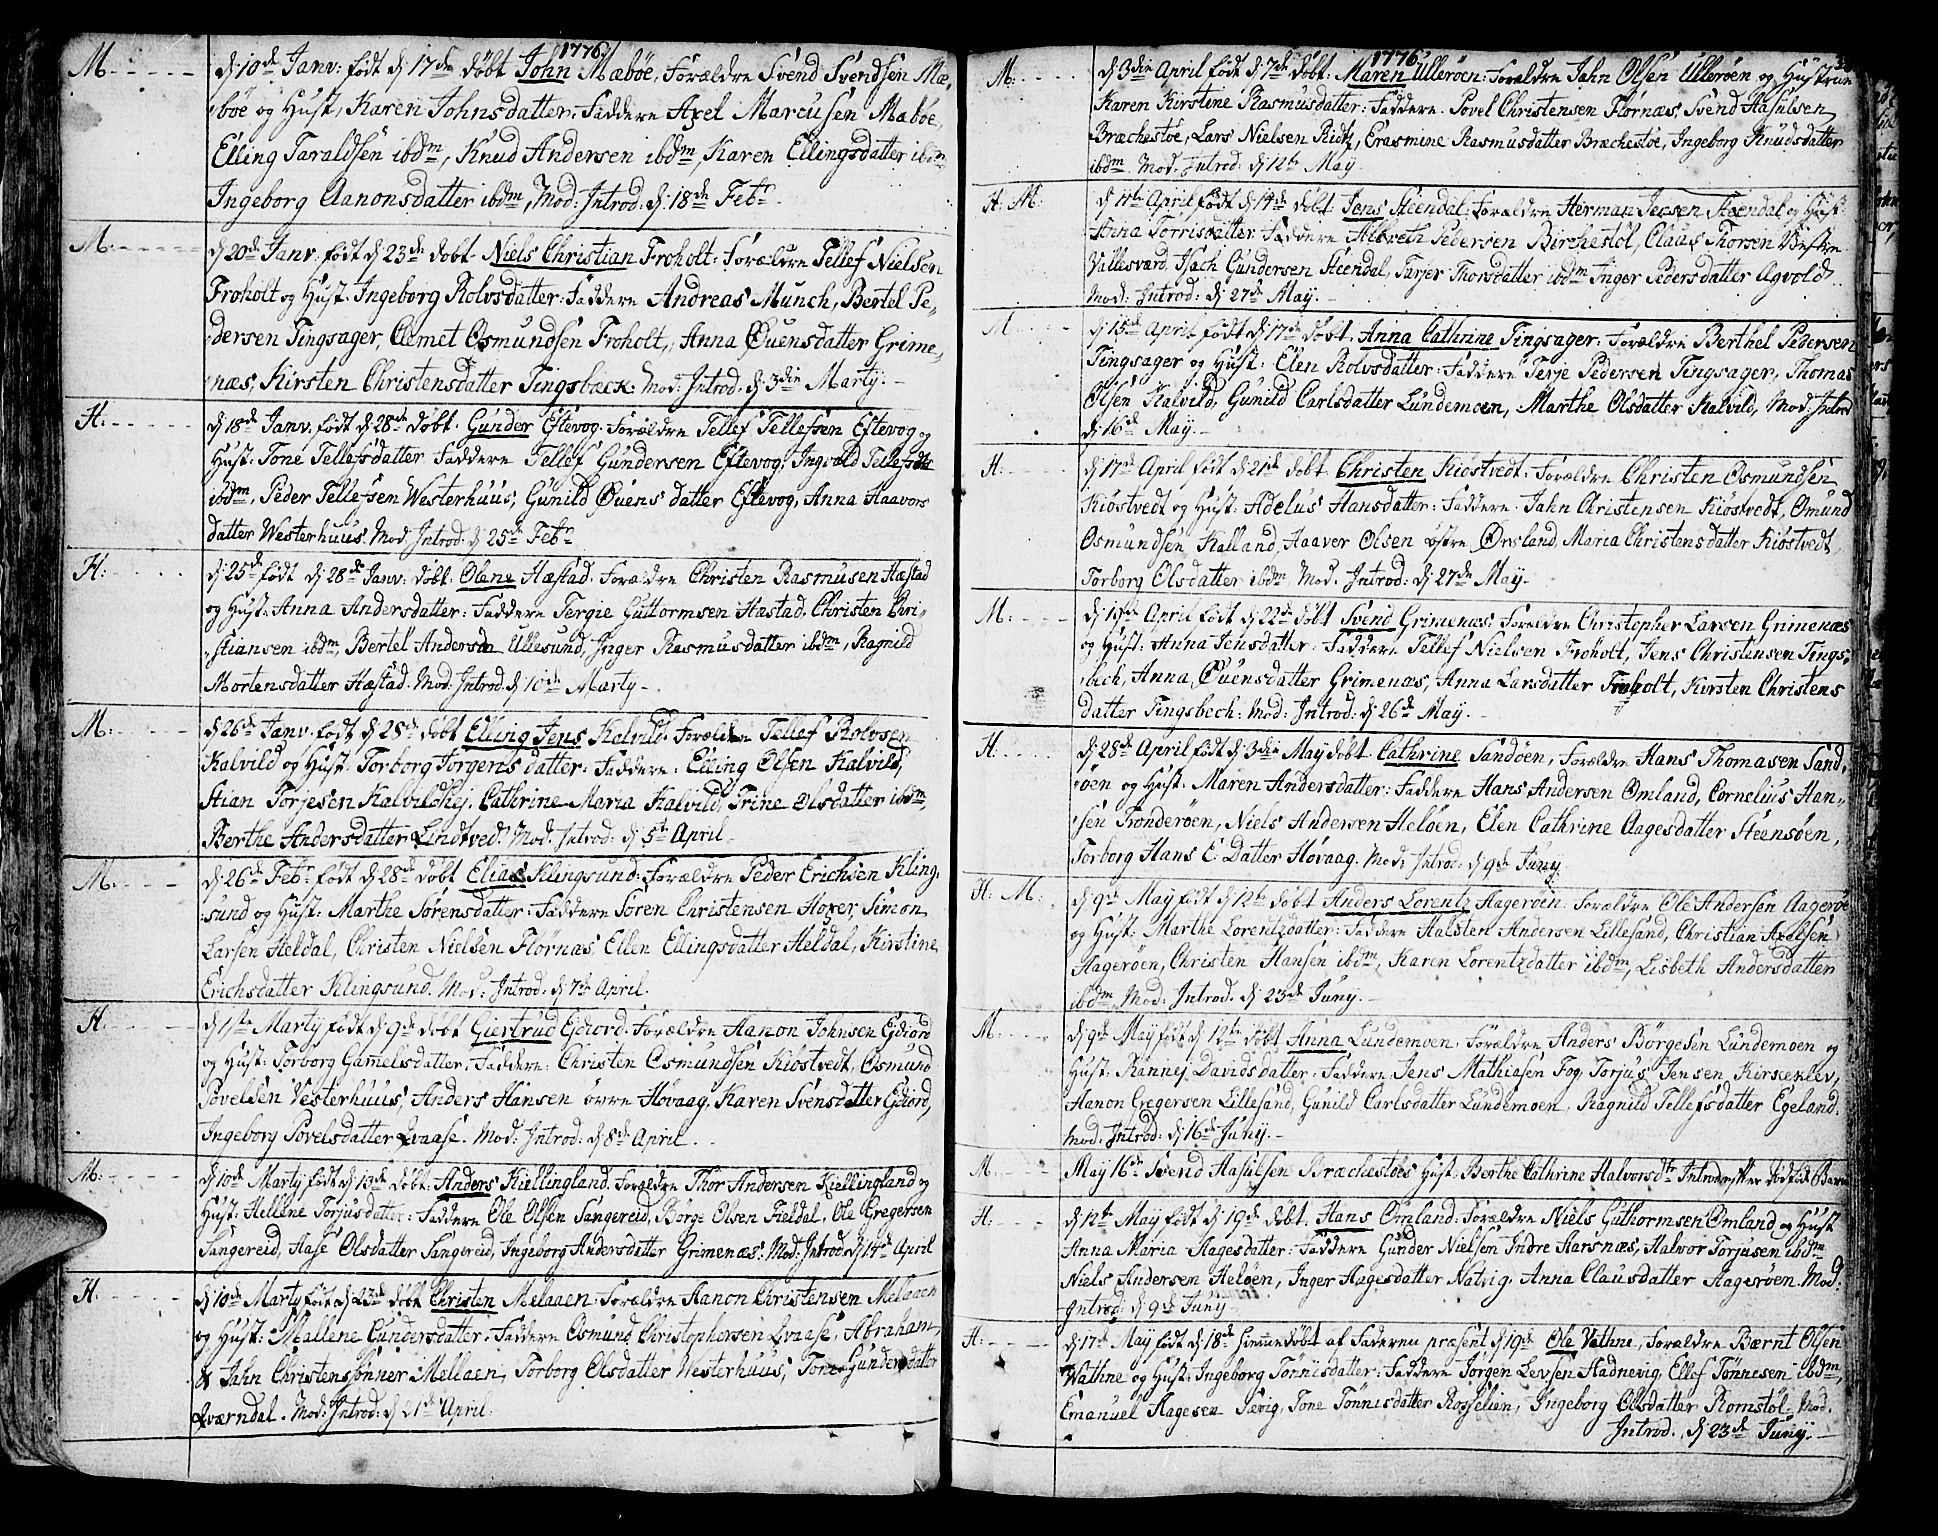 1776
M. d: 10de Janv: født d: 17de døbt John Mæbøe, Forældre Svend Svendsen Mæ-
bøe og Hust: Karen Johnsdatter: Faddere Axel Marcusen Mæbøe,
Elling Taraldsen ibdm, Knud Andersen ibdm, Karen Ellingsdatter ibdm
Ingeborg Aanonsdatter ibdm, Mod: Introd: d: 18de Febr.
M: d: 20de Janv: født d: 23de døbt Niels Christian Froholt: Forældre Tellef Nielsen
Froholt og Hust: Ingeborg Rolvsdatter: Faddere Andreas Munch, Bertel Pe-
dersen Tingsager, Clemet Osmundsen Froholt, Anna Øuensdatter Grime-
næs, Kirsten Christensdatter Tingsbæck: Mod: Introd: d: 3die Marty.
H: d: 18de Janv. født d: 28de døbt. Gunder Eftevog. Forældre Tellef Tellefsen Eftevog og
Hust: Tone Tellefsdatter Faddere Tellef Gundersen Eftevog, Ingvald Tellefsdtr
ibdm, Peder Tellefsen Westerhuus, Gunild Øuens datter Eftevog, Anna Haavors
datter Westerhuus. Mod. Introd. d: 25de Febr
H: d: 25de født d: 28de Janv: døbt. Olene Hæstad. Forældre Christen Rasmusen Hæstad
og Hust: Anna Andersdatter: Faddere Tergie Guttormsen Hæstad, Christen Chri-
stiansen ibdm, Bertel Andersen Ullesund, Inger Rasmusdatter ibdm, Ragnild
Mortensdatter Hæstad. Mod: Introd. d: 10de Marty.
M: d: 26de Janv. født d: 28de døbt Elling Jens Kalvild. Forældre Tellef Rolvsen
Kalvild og Hust: Torborg Jørgens datter: Faddere: Elling Olsen Kalvild,
Stian Torjesen Kalvildhej, Cathrine Maria Kalvild, Trine Olsdatter ibdm,
Berthe Andersdatter Lindtved. Mod. Introd: d: 5te April
M: d: 26de Febr. født d: 28de døbt Elias Klingsund: Forældre Peder Erichsen Kling-
sund og Hust: Marthe Sørensdatter: Faddere Søren Christensen Hoxer, Simon
Larsen Heldal, Christen Nielsen Flørnæs, Ellen Ellingsdatter Heldal, Kirstine
Erichsdatter Klingsund. Mod: Introd: d: 7de April.
H: d: 1ste Marty født d: 9de døbt Giertrud Ejdiord. Forældre Aanon Johnsen Ejdiord
og Hust: Torborg Gamelsdatter. Faddere: Christen Osmundsen Kiøstvedt, Osmund
Povelsen Vesterhuus, Anders Hansen øvre Høvaag, Karen Svensdatter Ejdiord,
Ingeborg Povelsdatter Qvaase. Mod: Introd: d: 8de April.
M: d: 10de Marty født d: 13de døbt: Anders Kiellingland. Forældre Thor Andersen Kiellingland og
Hust: Hellene Torjusdatter: Faddere Ole Olsen Sangereid, Børge Olsen Fieldal, Ole Gregersen
Sangereid, Aase Olsdatter Sangereid, Ingeborg Andersdatter Grimenæs: Mod: Introd: d: 14de April
H: d: 10de Marty født d: 23de døbt Christen Melaaen: Forældre Aanon Christensen Melaaen
og Hust: Mallene Gundersdatter. Faddere Osmund Christophersen Qvaase, Abraham
& Jahn Christensønner Mellaen, Torborg Olsdatter Westerhuus, Tone Gundersdatter
Qværndal. Mod: Introd: d: 21de April.
1776
M: d: 3die April født d: 7de døbt: Maren Ullerøen: Forældre Jahn Olsen Ullerøen og Hustrue
Karen Kirstine Rasmusdatter: Faddere: Povel Christensen Flørnæs, Svend Aasulsen
Bræchestøe, Lars Nielsen Ridtz, Erasmine Rasmusdatter Bræchestøe, Ingeborg Knudsdatter
ibdm. Mod. Introd. d: 12te May.
H: M: d: 11te April født d: 14de døbt Jens Steendal: Forældre Herman Jensen Steendal og Hust:
Anna Torrisdatter. Faddere Albreth Pedersen Birchestøl, Claus Thorsen Vestre
Vallesværd, Isach Gundersen Steendal, Tarjer Thorsdatter ibdm Inger Pedersdatter Agvold.
Mod: Introd: d: 27de May.
M: d: 15de April født d: 17de døbt. Anna Cathrine Tingsager: Forældre Berthel Pedersen
Tingsager og Hust: Elen Rolvsdatter: Faddere Terje Pedersen Tingsager, Thomas
Olsen Kalvild, Gunild Carlsdatter Lundemoen, Marthe Olsdatter Kalvild, Mod: Introd
d: 16de May.
H: d: 17de April født d: 21de døbt Christen Kiøstvedt: Forældre Christen Osmundsen
Kiøstvedt og Hust: Adelus Hansdatter: Faddere: Jahn Christensen Kiøstvedt, Omund
Osmundsen Kalland, Haaver Olsen østre Ørsland, Maria Christensdatter Kiøstvedt,
Torborg Olsdatter ibdm Mod. Introd: d: 27de May.
M: d: 19de April født d: 22de døbt Svend Grimenæs. Forældre Christopher Larsen Grimenæs
og Hust: Anna Jensdatter: Faddere Tellef Nielsen Froholt, Jens Christensen Tings-
bech, Anna Øuensdatter Grimenæs, Anna Larsdatter Froholt, Kirsten Christens
datter Tingsbech: Mod: Introd: d: 26de May.
H: d: 28de April født d: 3die May døbt Cathrine Sandøen, Forældre Hans Thomasen Sand-
øen og Hust: Maren Andersdatter: Faddere Hans Andersen Omland, Cornelius Han-
sen Trønderøen, Niels Andersen Heløen, Elen Cathrine Aagesdatter Steensøen,
Torborg Hans E: Datter Høvaag. Mod: Introd: d: 9de Juny.
H: M: d: 9de May født d: 12te døbt Anders Lorentz Aagerøen: Forældre Ole Andersen Aagerøe
og Hust: Marthe Lorentzdatter: Faddere Halsten Andersen Lillesand, Christian Axelsen
Aagerøen, Christen Hansen ibdm, Karen Lorentzdatter ibdm, Lisbeth Andersdatter
ibdm. Mod: Introd. d: 23de Juny.
M. d: 9de May født d: 12te døbt Anna Lundemoen. Forældre Anders Børgesen Lundemoen og
Hust: Rannej Davidsdatter: Faddere Jens Mathiasen Fog, Torjus Jensen Kirkeklev,
Aanon Gregersen Lillesand, Gunild Carlsdatter Lundemoen, Ragnild Tellefsdatter Egeland.
Mod: Introd: d: 16de Juny.
M. May 16de Svend Aasulsen Bræchestøes Hust: Berthe Cathrine Halvorsdtr Introd: efter dødfød Barn
H: d: 12te May født d: 19de døbt. Hans Omland: Forældre Niels Guthormsen Omland og Hust
Anna Maria Aagesdatter: Faddere Gunder Nielsen Indre Aarsnæs, Halvor Torjusen ibdm
Niels Andersen Heløen, Inger Aagesdatter Natvig, Anna Clausdatter Aagerøen. Mod:
Introd: d: 9de Juny
H: d: 17de May født d: 18de hiemmedøbt af Faderen præsent d: 19de Ole Vathne, Forældre Bærnt Olsen
Wathne og Hust: Ingeborg Tønnisdatter: Faddere Jørgen Levsen Hadnevig, Ellef Tønnesen ibdm,
Emanuel Aagesen Sævig, Tone Tønnisdatter Rosselien, Ingeborg Olsdatter Romstøl. Mod.
Introd. d: 23de Juny.